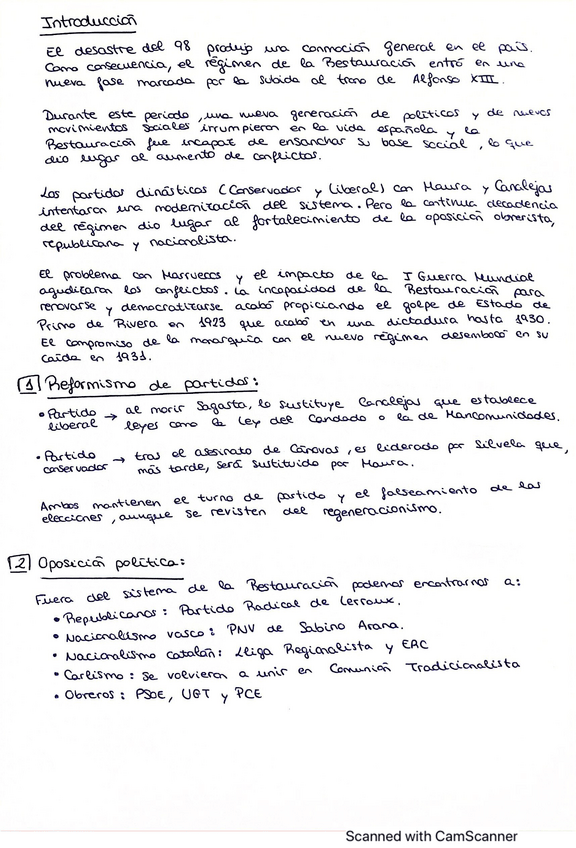 Introducción
El desastre del 98 produjo una conmoción general en el país.
Como consecuencia, el régimen de la Restauración entró en una
nueva fase marcada por la subida al trono de Alfonso XIII.
Durante este periodo, una nueva generación de políticos y de nuevos
movimientos sociales irrumpieron en la vida española y la
Restauración fue incapaz de ensanchar su base social, lo que
dio lugar al aumento de conflictos.
Los partidos dinásticos (Conservador y Liberal) con Maura y Canalejas
intentaron una modernización del sistema. Pero la continua decadencia
del régimen dio lugar al fortalecimiento de la oposición obrerista,
republicana y nacionalista.
El problema con Marruecos y el impacto de la I Guerra Mundial
agudizaron los conflictos. La incapacidad de la Restauración para
renovarse y democratizarse acabó propiciando el golpe de Estado de
Primo de Rivera en 1923 que acabó en una dictadura hasta 1930.
El compromiso de la monarquía con el nuevo régimen desembocó en su
caída en 1931.
1 Reformismo de partidos:
• Partido liberal → al morir Sagasta, lo sustituye Canalejas que establece
leyes como la Ley del Candado o la de Mancomunidades.
• Partido conservador → tras el asesinato de Cánovas, es liderado por Silvela que,
más tarde, será sustituido por Maura.
Ambos mantienen el turno de partido y el falseamiento de las
elecciones, aunque se revisten del regeneracionismo.
2 Oposición política:
Fuera del sistema de la Restauración podemos encontrarnos a:
• Republicanos: Partido Radical de Lerroux.
• Nacionalismo vasco: PNV de Sabino Arana.
• Nacionalismo catalán: Lliga Regionalista y EAC
• Carlismo: se volvieron a unir en Comunión Tradicionalista
• Obreros: PSOE, UGT y PCE
Scanned with CamScanner